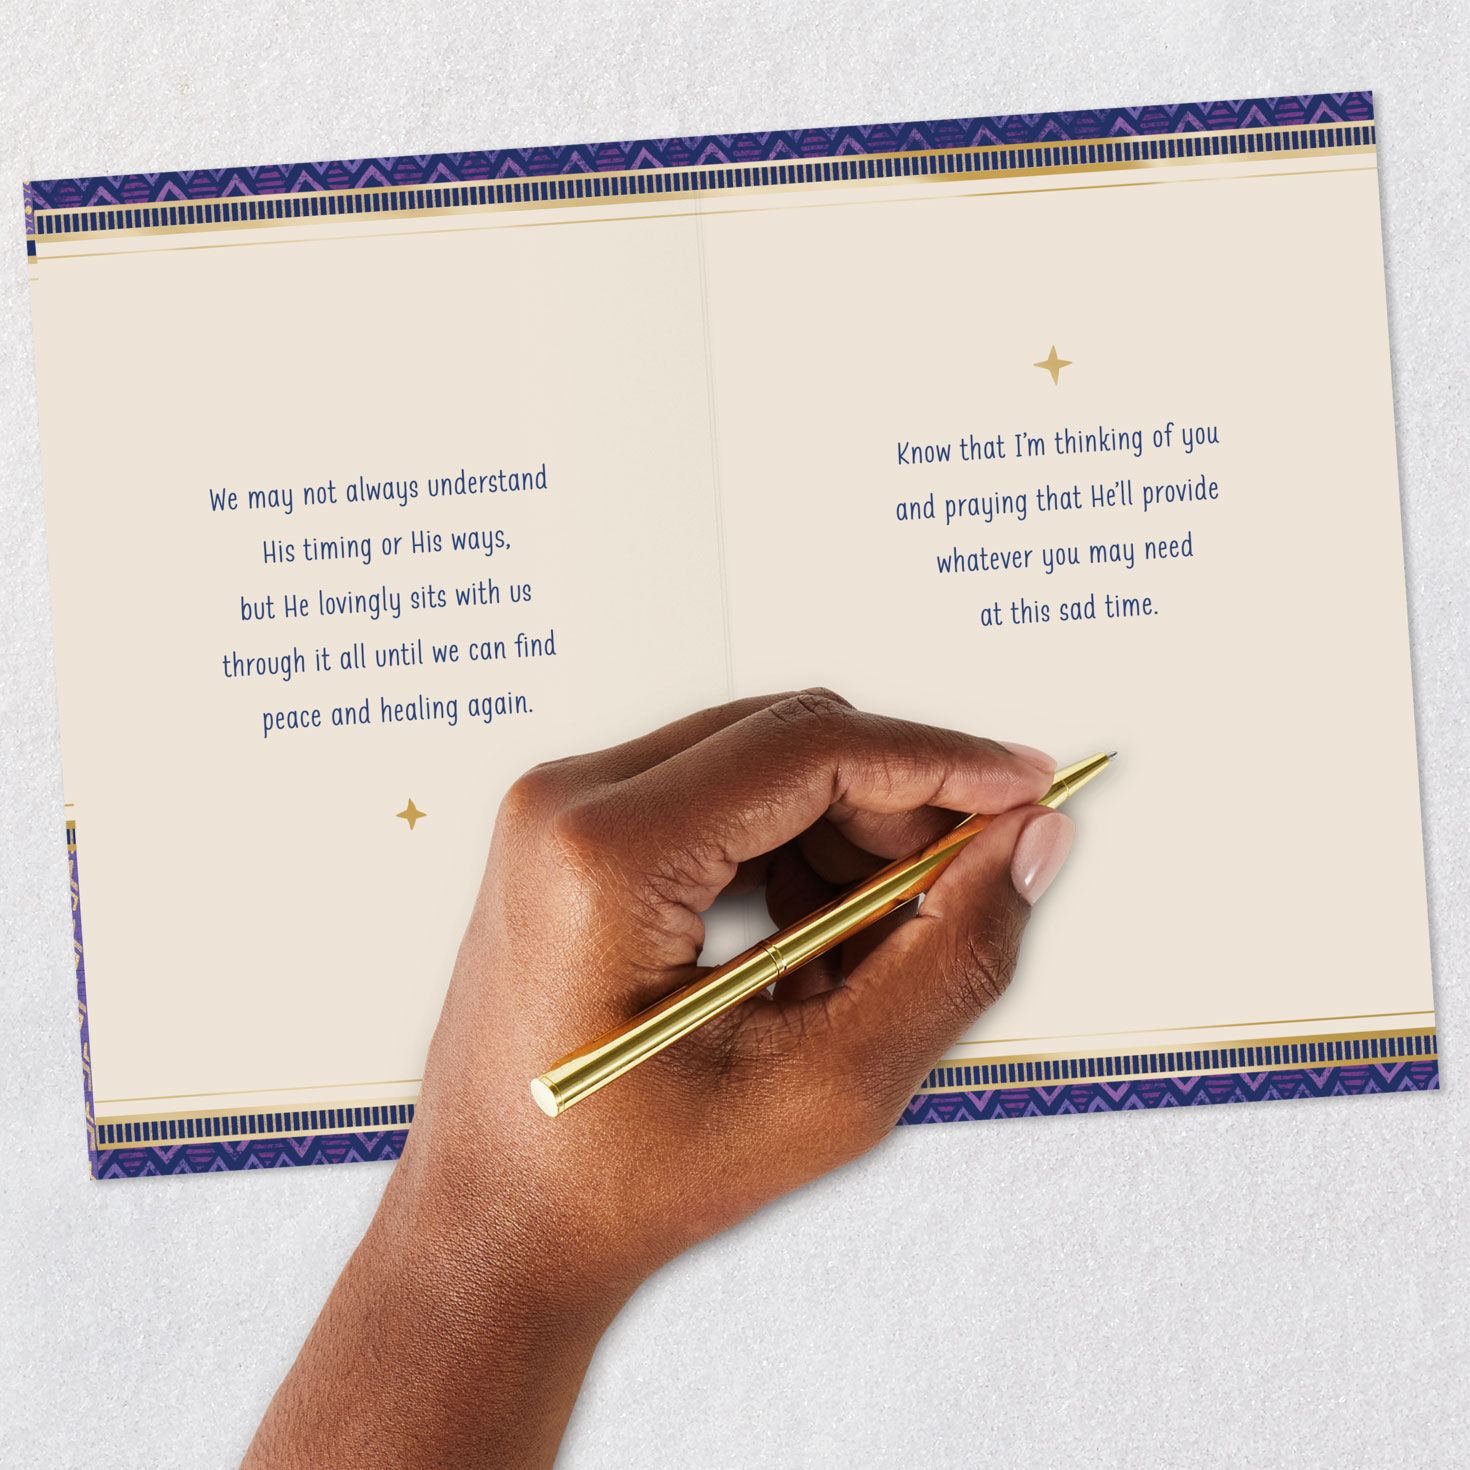 We may not always understand
His timing or His ways,
but He lovingly sits with us
through it all until we can find
peace and healing again.
Know that I'm thinking of you
and praying that He'll provide
whatever you may need
at this sad time.